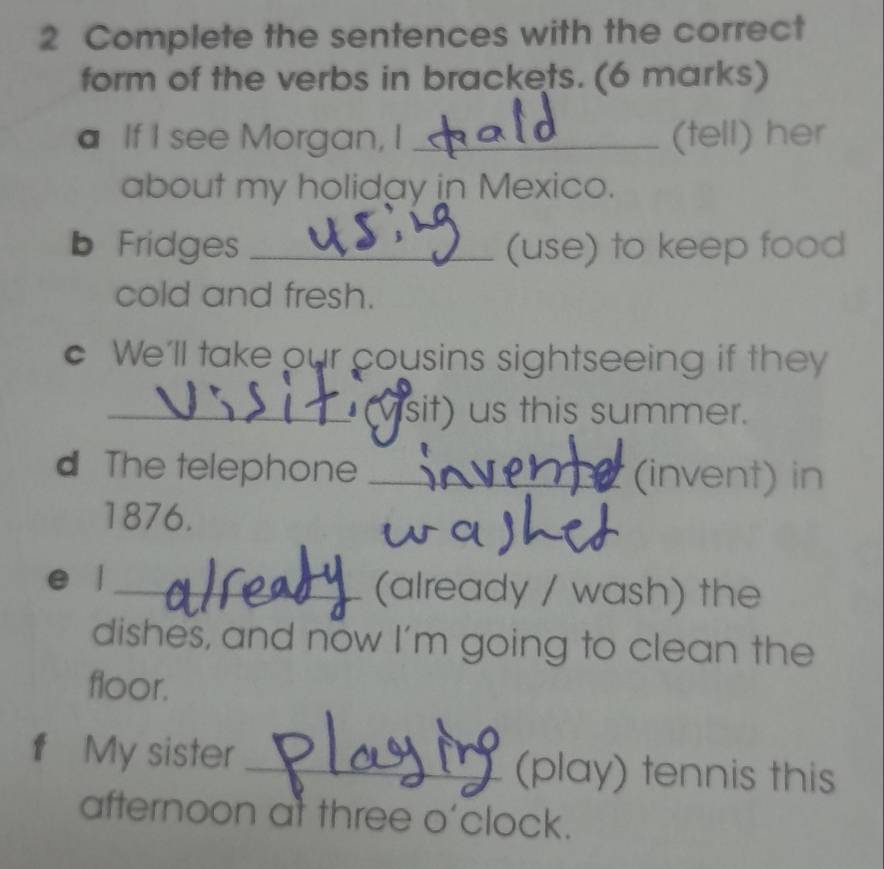 2 Complete the sentences with the correct
form of the verbs in brackets. (6 marks)
a If I see Morgan, I tald (tell) her
about my holiday in Mexico.
b Fridges using (use) to keep food
cold and fresh.
c We'll take our cousins sightseeing if they
visiting (visit) us this summer.
d The telephone invented (invent) in
1876.
washed
e I already (already / wash) the
dishes, and now I'm going to clean the
floor.
f My sister playing (play) tennis this
afternoon at three o'clock.